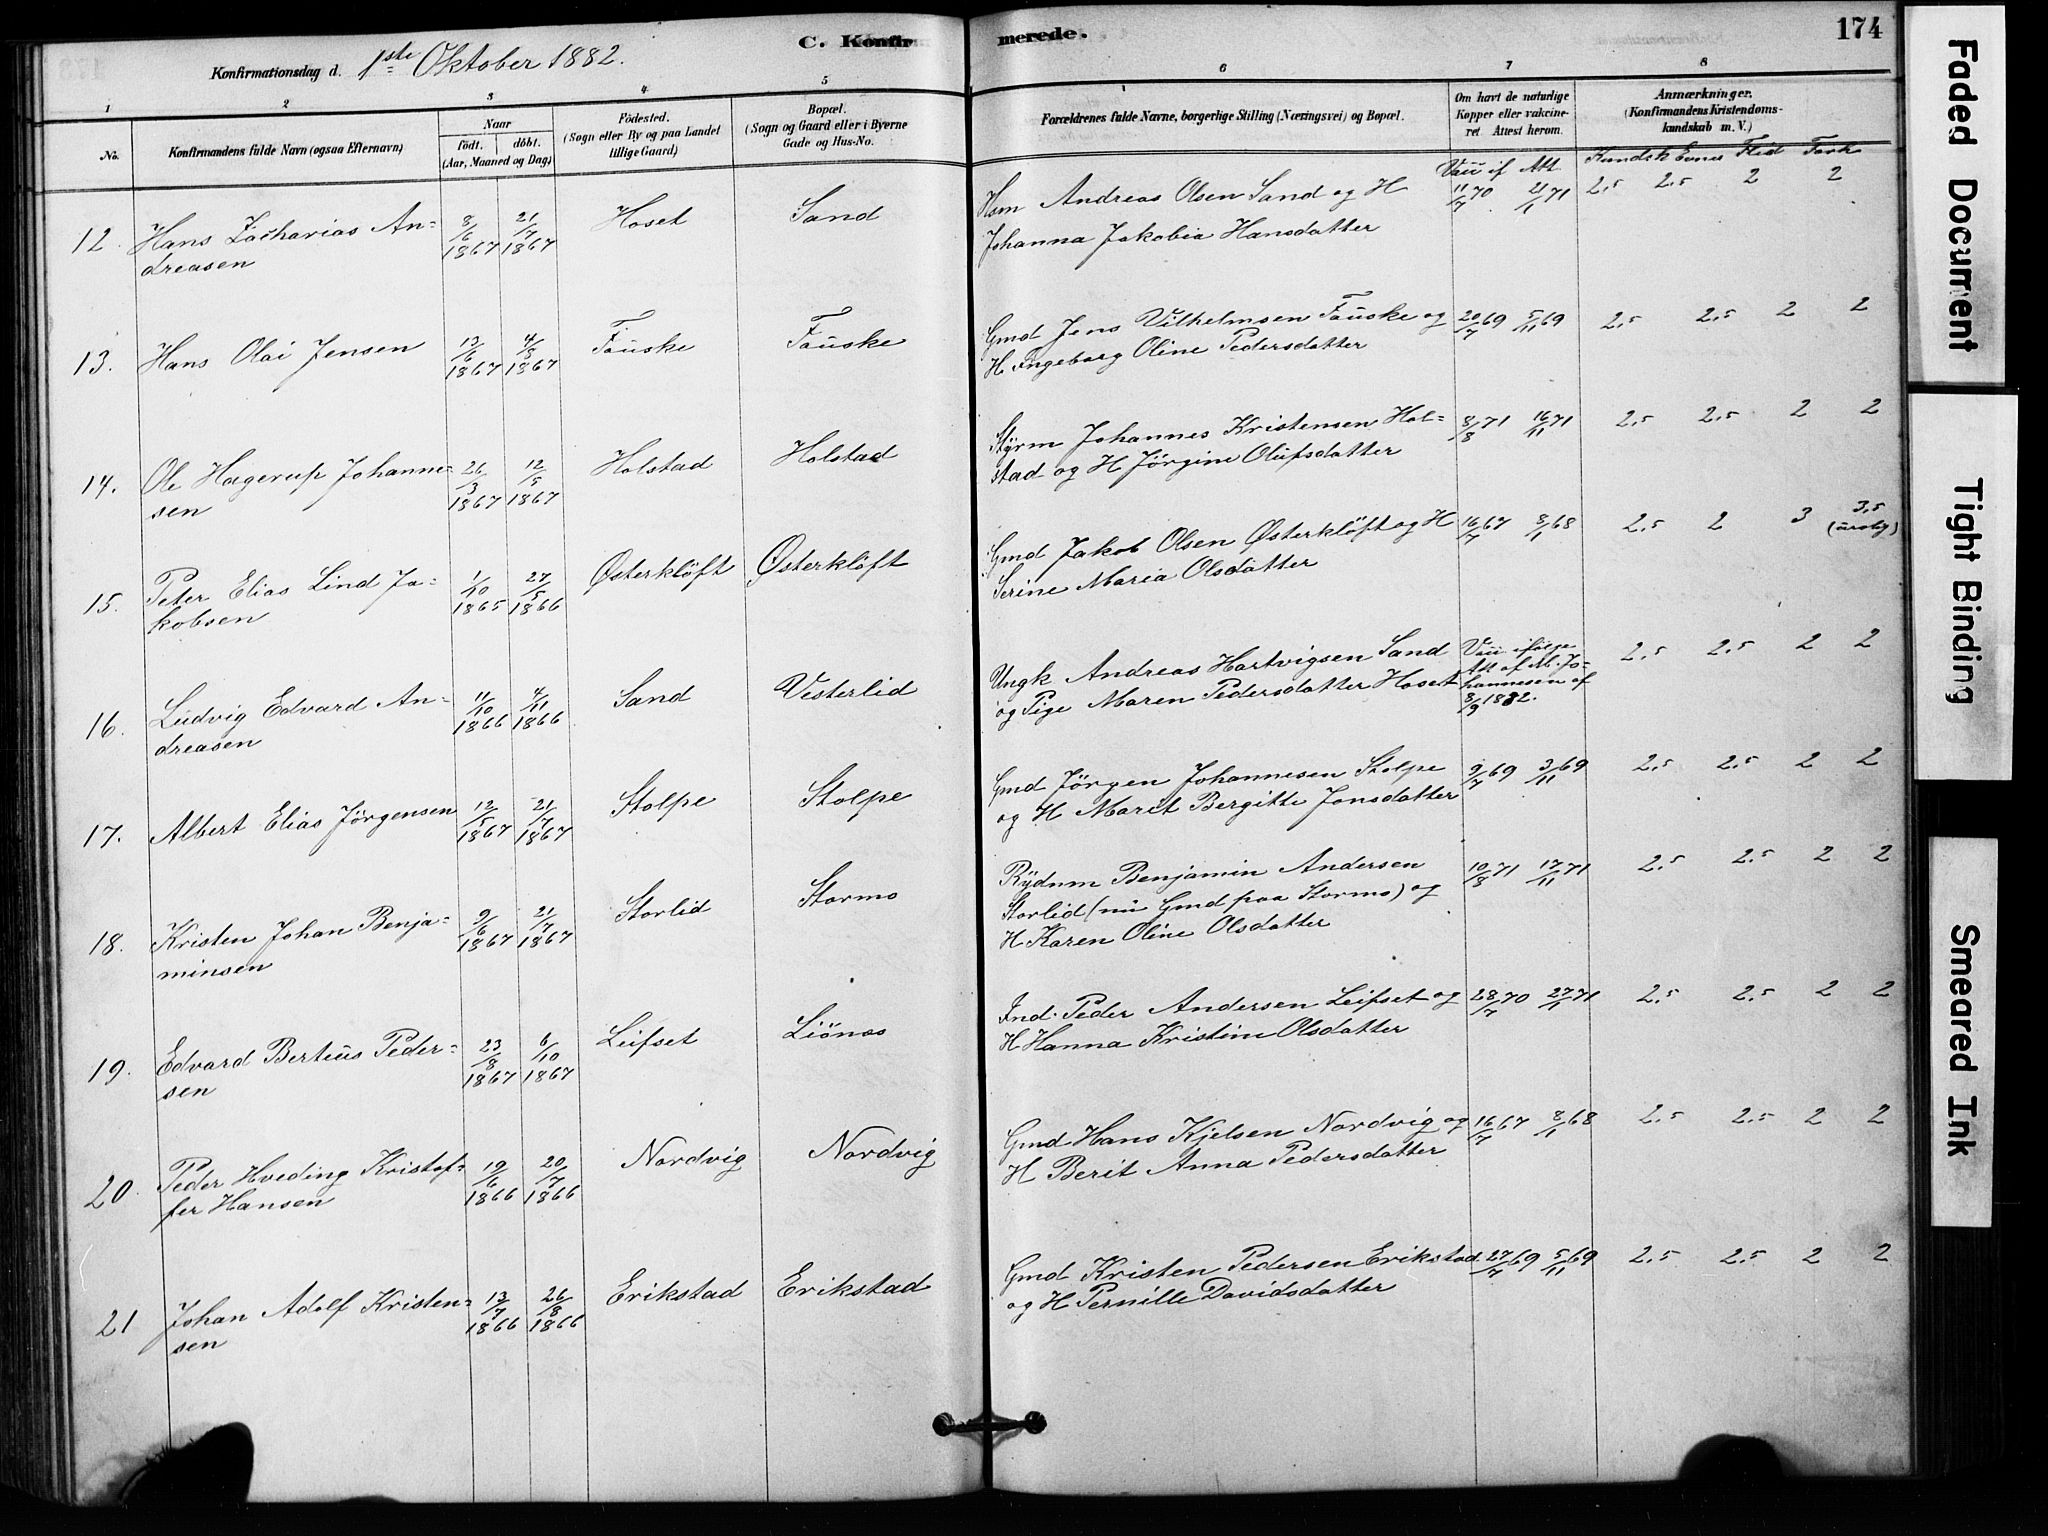 174
C. Konfirmerede.
Konfirmationsdag d. 1ste Oktober 1882.
1 2 3 4 5 6 7 8
No.
Konfirmandens fulde Navn (ogsaa Efternavn)
Naar
födt. döbt.
(Aar, Maaned og Dag)
Födested.
(Sogn eller By og paa Landet
tillige Gaard)
Bopæl.
(Sogn og Gaard eller i Byerne
Gade og Hus-No.
Forældrenes fulde Navne, borgerlige Stilling (Næringsvei) og Bopæl.
Om havt de naturlige
Kopper eller vakcine-
ret. Attest herom.
Anmærkninger.
(Konfirmandens Kristendoms-
kundskab m. V.)
Vacc if Att
Kundsk Evner Flid Forh
12. Hans Zacharias An=
dreasen
8/6 1867 21/7 1867 Hoset Sand
Hsm Andreas Olsen Sand og H
Johanna Jakobia Hansdatter
11/7 70 21/1 71 2,5 2,5 2 2
13. Hans Olai Jensen
13/6 1867 4/8 1867 Fauske Fauske
Gmd Jens Vilhelmsen Fauske og
H Ingeborg Oline Pedersdatter
20/7 69 5/11 69 2,5 2,5 2 2
14. Ole Hagerup Johanne=
sen
26/3 1867 12/5 1867 Holstad Holstad
Styrm Johannes Kristensen Hol=
stad og H Jörgine Olufsdatter
8/8 71 16/11 71 2,5 2,5 2 2
15. Peter Elias Lind Ja=
kobsen
1/10 1865 27/5 1866 Østerklöft Østerklöft
Gmd Jakob Olsen Østerklöft og H
Serine Maria Olsdatter
16/7 67 8/1 68 2,5 2 3 3,5
(urolig)
16. Ludvig Edvard An=
dreasen
11/10 1866 4/11 1866 Sand Vesterlid
Ungk Andreas Hartvigsen Sand
og Pige Maren Pedersdatter Hoset
Vacc ifölge
Att af M. Jo=
hannesen af
8/9 1882.
2,5 2,5 2 2
17. Albert Elias Jörgensen
12/5 1867 21/7 1867 Stolpe Stolpe
Gmd Jörgen Johannesen Stolpe
og H Marit Bergitte Jonsdatter
9/7 69 3/11 69 2,5 2,5 2 2
18. Kristen Johan Benja=
minsen
9/6 1867 21/7 1867 Storlid Stormo
Rydnm Benjamin Andersen
Storlid (nu Gmd paa Stormo) og
H Karen Oline Olsdatter
10/8 71 17/11 71 2,5 2,5 2 2
19. Edvard Berteus Peder=
sen
23/8 1867 6/10 1867 Leifset Liönes
Ind. Peder Andersen Leifset og
H Hanna Kristine Olsdatter
28/7 70 27/1 71 2,5 2,5 2 2
20. Peder Hveding Kristof=
fer Hansen
19/6 1866 20/7 1866 Nordvig Nordvig
Gmd Hans Kjelsen Nordvig og
H Berit Anna Pedersdatter
16/7 67 8/1 68 2,5 2,5 2 2
21 Johan Adolf Kristen=
sen
13/7 1866 26/8 1866 Erikstad Erikstad
Gmd Kristen Pedersen Erikstad
og H Pernille Davidsdatter
27/7 69 5/11 69 2,5 2,5 2 2
Faded Document
Tight Binding
Smeared Ink